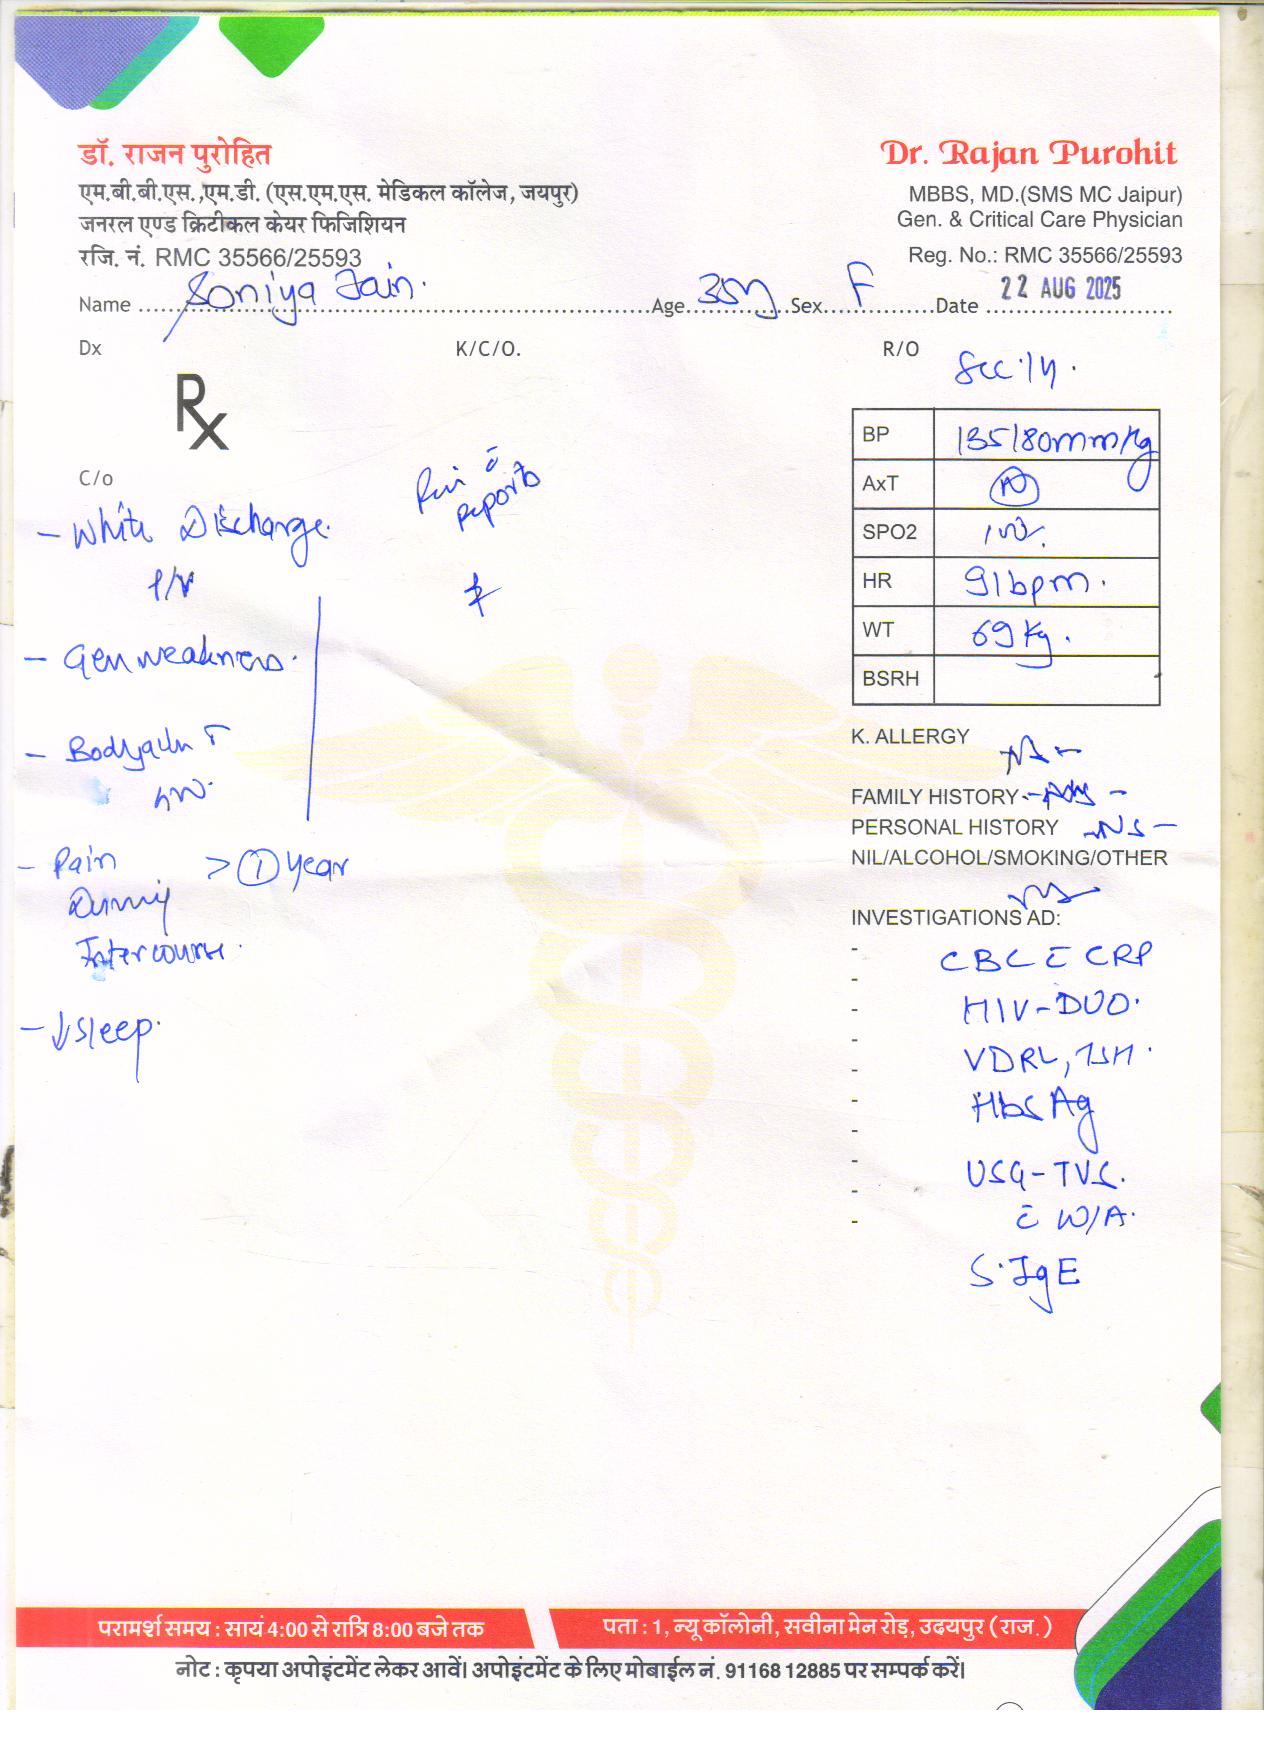 डॉ. राजन पुरोहित
एम.बी.बी.एस.,एम.डी. (एस.एम.एस. मेडिकल कॉलेज, जयपुर)
जनरल एण्ड क्रिटीकल केयर फिजिशियन
रजि. नं. RMC 35566/25593
Dr. Rajan Purohit
MBBS, MD.(SMS MC Jaipur)
Gen. & Critical Care Physician
Reg. No.: RMC 35566/25593
Name Soniya Jain. Age 35y Sex F Date 22 AUG 2025
Dx K/C/O. R/O
Rx
BP 135/80mm/Hg
AxT N
SPO2 100%
HR 91bpm.
WT 69Kg.
BSRH
C/o
- White Discharge
P/V
- Gen weakness.
- Bodyache
- Pain > 1 year
During
Intercourse
- ↓sleep.
reports
K. ALLERGY
FAMILY HISTORY
PERSONAL HISTORY - NS -
NIL/ALCOHOL/SMOKING/OTHER
INVESTIGATIONS AD:
CBC c̄ CRP
HIV-DUO.
VDRL, TSH.
HbsAg
USG-TVS.
c̄ W/A.
S.IgE
परामर्श समय : सायं 4:00 से रात्रि 8:00 बजे तक
पता : 1, न्यू कॉलोनी, सवीना मेन रोड़, उदयपुर (राज.)
नोट : कृपया अपोइंटमेंट लेकर आवें। अपोइंटमेंट के लिए मोबाईल नं. 91168 12885 पर सम्पर्क करें।